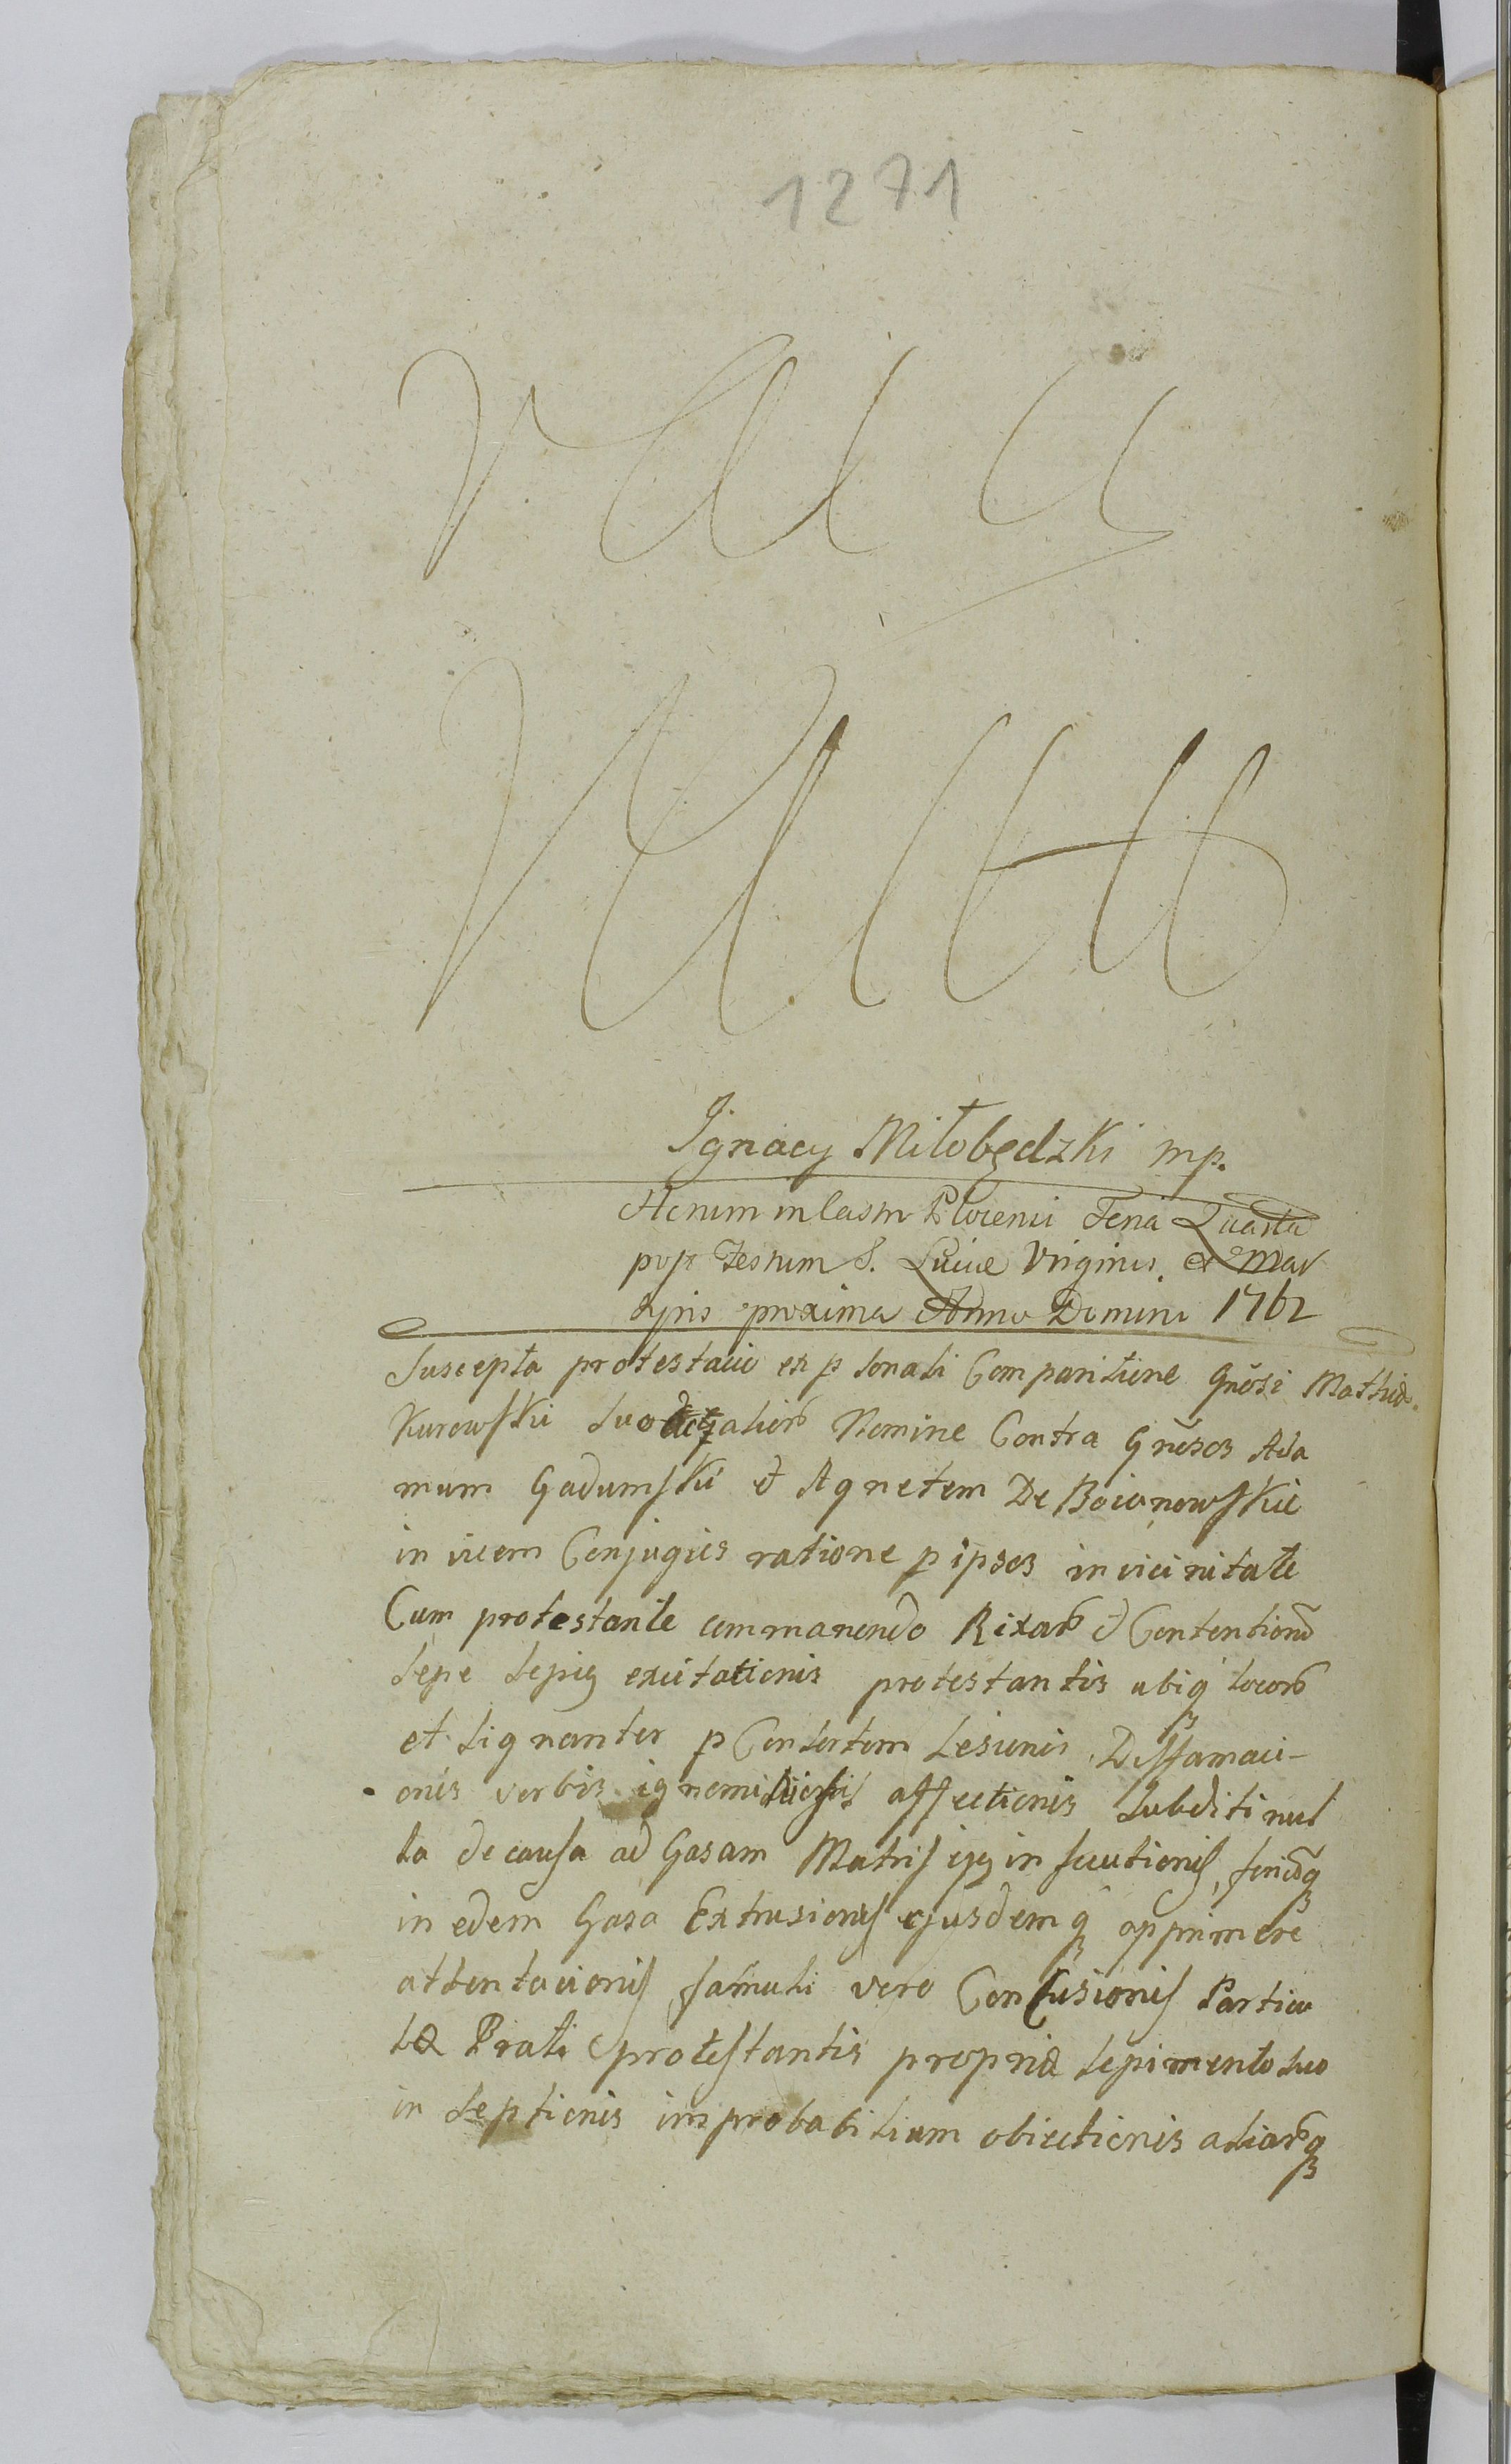 1271
Ignacy Miłobędzki mp.
Actum in Castro Plocensi Feria Quarta
post Festum S. Luciæ Virginis et Mar
tyris proxima Anno Domini 1762
Suscepta protestacio ex psonali Comparitione Gnõsi Mathiæ
Kurowskii suo Nomine Contra Gnẽsos Ada
mum Gadumskii et Agnetem De Boianowskie
in vicem Conjuges ratione p ipsos in vicinitate
Cum protestante commanendo Rixarũ et Contentionũ
sepe sepiq excitationis protestantis ubiq locorũ
et signanter p Consortem Lesionis Diffamaci-
onis verbis ignominiosis affectionis Subditi nul
la de causa ad Casam Matris in
in edem Casa Extrusionis ejusdemq opprimere
attentacionis famuli vero Contusionis Particu
læ Prati protestantis propriæ sepimento suo
in septionis improbabilium obiectionis aliarũq